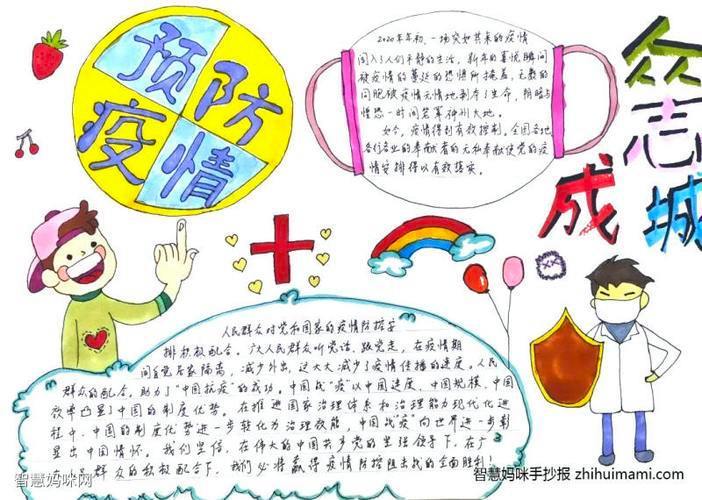 预防
疫情
2020年年初,一场突如其来的疫情
闯入了人们平静的生活,新年的喜悦瞬间
被疫情的蔓延的恐惧所掩盖,无数的
同胞被疫情无情地剥夺了生命,阴暗与
惶恐一时间笼罩神州大地。
如今,疫情得到有效控制。全国各地
各行各业的奉献者的无私奉献使党的疫
情安排得以有效落实。
众志
成城
人民群众对党和国家的疫情防控安
排积极配合。广大人民群众听党话,跟党走,在疫情期
间自觉居家隔离,减少外出,这大大减少了疫情传播的速度。人民
群众的配合,助力了“中国抗疫”的成功。中国战“疫”以中国速度、中国规模、中国
效率凸显了中国的制度优势。在推进国家治理体系和治理能力现代化进
程中,中国的制度优势进一步转化为治理效能。中国战“疫”向世界进一步彰
显出中国情怀。我们坚信,在伟大的中国共产党的坚强领导下,在广
大人民群众的积极配合下,我们必将赢得疫情防控阻击战的全面胜利!
智慧妈咪网
智慧妈咪手抄报 zhihuimami.com